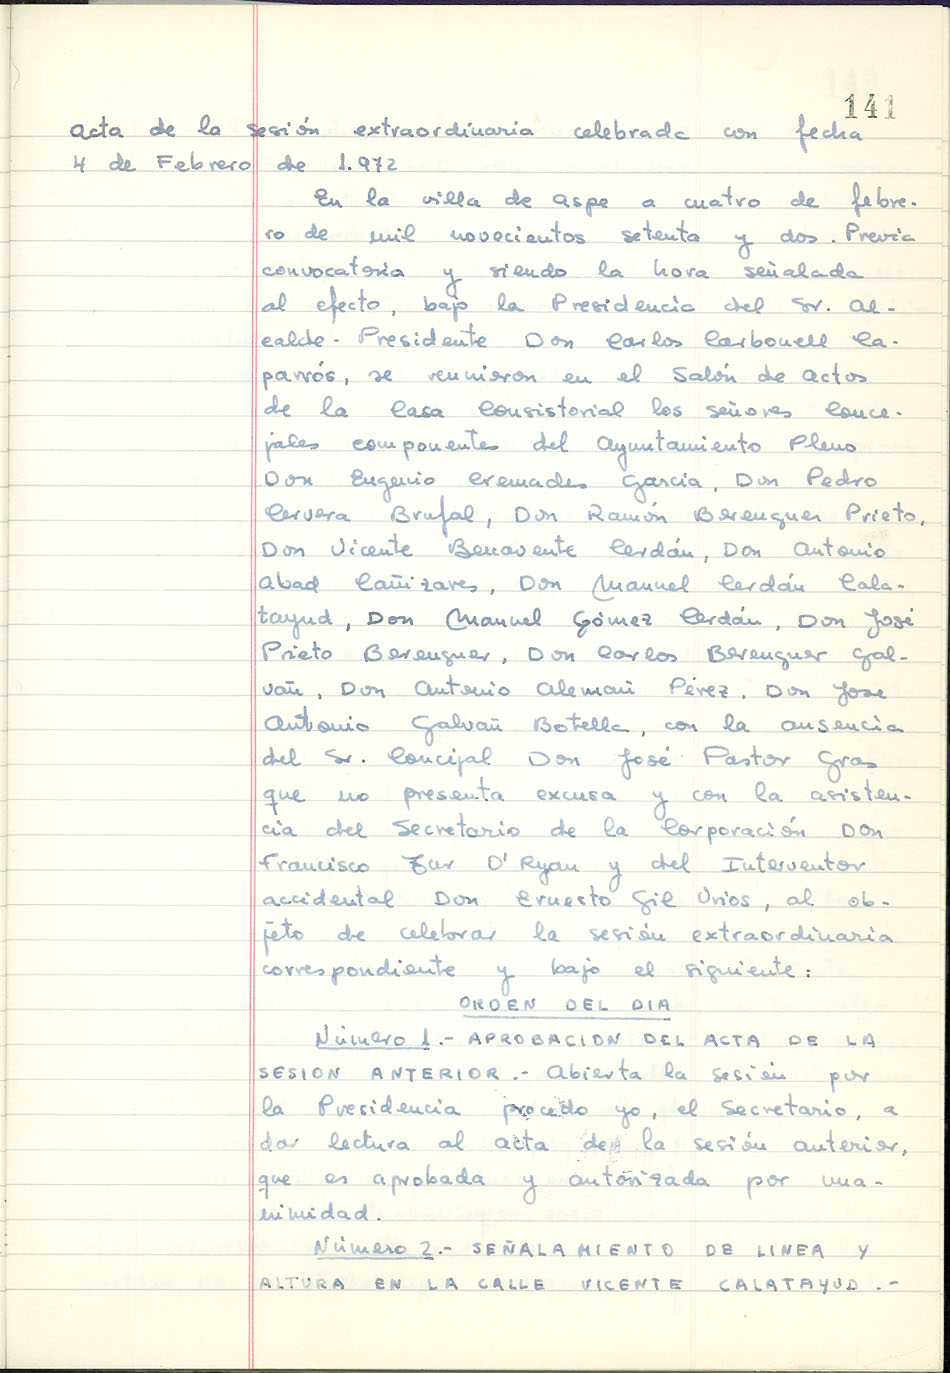 141
acta de la sesión extraordinaria celebrada con fecha
4 de Febrero de 1.972
En la villa de aspe a cuatro de febre-
ro de mil novecientos setenta y dos. Previa
convocatoria y siendo la hora señalada
al efecto, bajo la Presidencia del Sr. Al-
calde-Presidente Don Carlos Carbonell Ca-
parrós, se reunieron en el Salón de actos
de la Casa Consistorial los señores Conce-
jales componentes del Ayuntamiento Pleno
Don Eugenio Cremades García, Don Pedro
Cervera Brufal, Don Ramón Berenguer Prieto,
Don Vicente Benavente Cerdán, Don Antonio
Abad Cañizares, Don Manuel Cerdán Cala-
tayud, Don Manuel Gómez Cerdán, Don José
Prieto Berenguer, Don Carlos Berenguer Gal-
vañ, Don Antonio Alemañ Pérez, Don Jose
Antonio Galvañ Botella, con la ausencia
del Sr. Concejal Don José Pastor Gras
que no presenta excusa y con la asisten-
cia del Secretario de la Corporación Don
Francisco Zur O'Ryan y del Interventor
accidental Don Ernesto Gil Urios, al ob-
jeto de celebrar la sesión extraordinaria
correspondiente y bajo el siguiente:
ORDEN DEL DIA
Número 1.- APROBACION DEL ACTA DE LA
SESION ANTERIOR.- Abierta la sesión por
la Presidencia procedo yo, el Secretario, a
dar lectura al acta de la sesión anterior,
que es aprobada y autorizada por una-
nimidad.
Número 2.- SEÑALAMIENTO DE LINEA Y
ALTURA EN LA CALLE VICENTE CALATAYUD.-